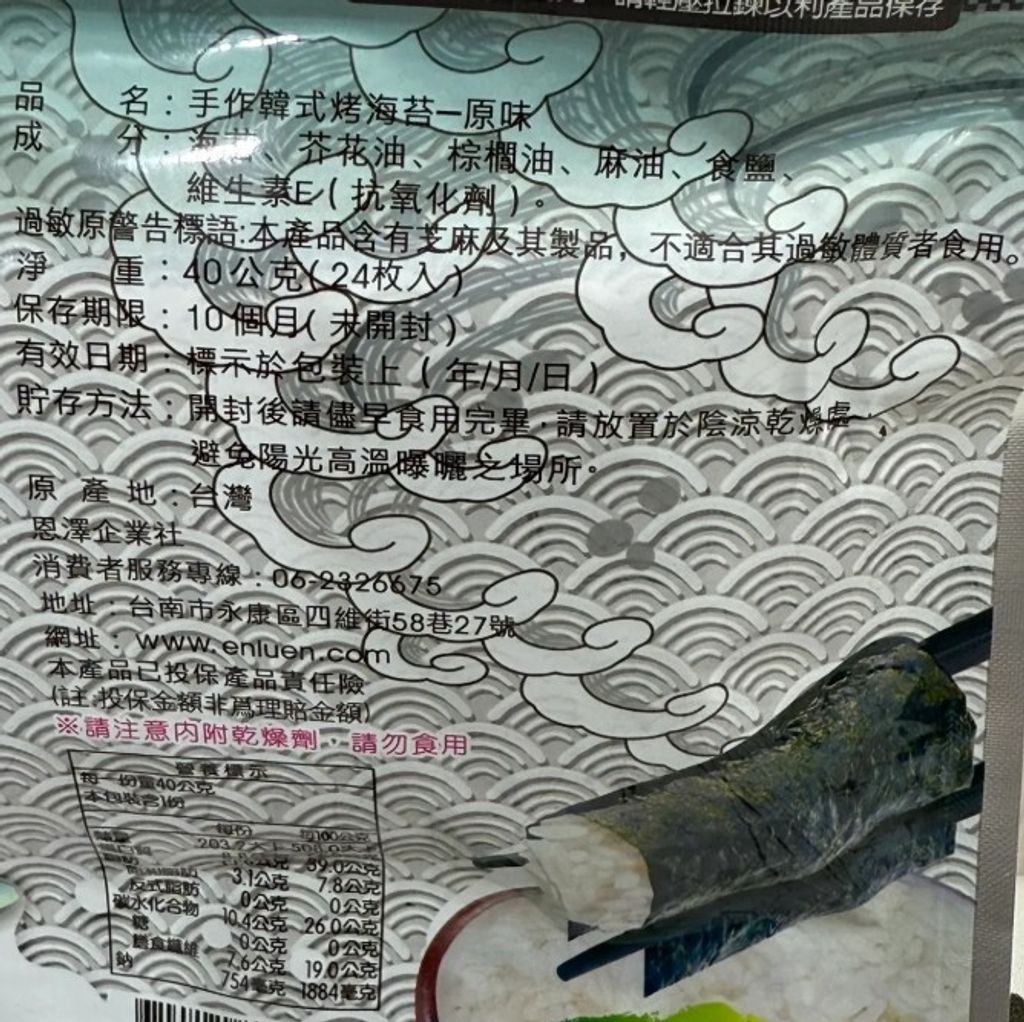 請輕壓拉鍊以利產品保存
品名：手作韓式烤海苔－原味
成分：海苔、芥花油、棕櫚油、麻油、食鹽、
維生素E（抗氧化劑）。
過敏原警告標語:本產品含有芝麻及其製品，不適合其過敏體質者食用。
淨重：40公克(24枚入)
保存期限：10個月(未開封)
有效日期：標示於包裝上（年/月/日）
貯存方法：開封後請儘早食用完畢，請放置於陰涼乾燥處，
避免陽光高溫曝曬之場所。
原產地：台灣
恩澤企業社
消費者服務專線：06-2326675
地址：台南市永康區四維街58巷27號
網址：www.enluen.com
本產品已投保產品責任險
(註:投保金額非為理賠金額)
※請注意內附乾燥劑，請勿食用
營養標示
每一份量40公克
本包裝含1份
每份 每100公克
熱量
脂肪 39.0公克
3.1公克 7.8公克
反式脂肪 0公克 0公克
碳水化合物 10.4公克 26.0公克
糖 0公克 0公克
膳食纖維 7.6公克 19.0公克
鈉 754毫克 1884毫克